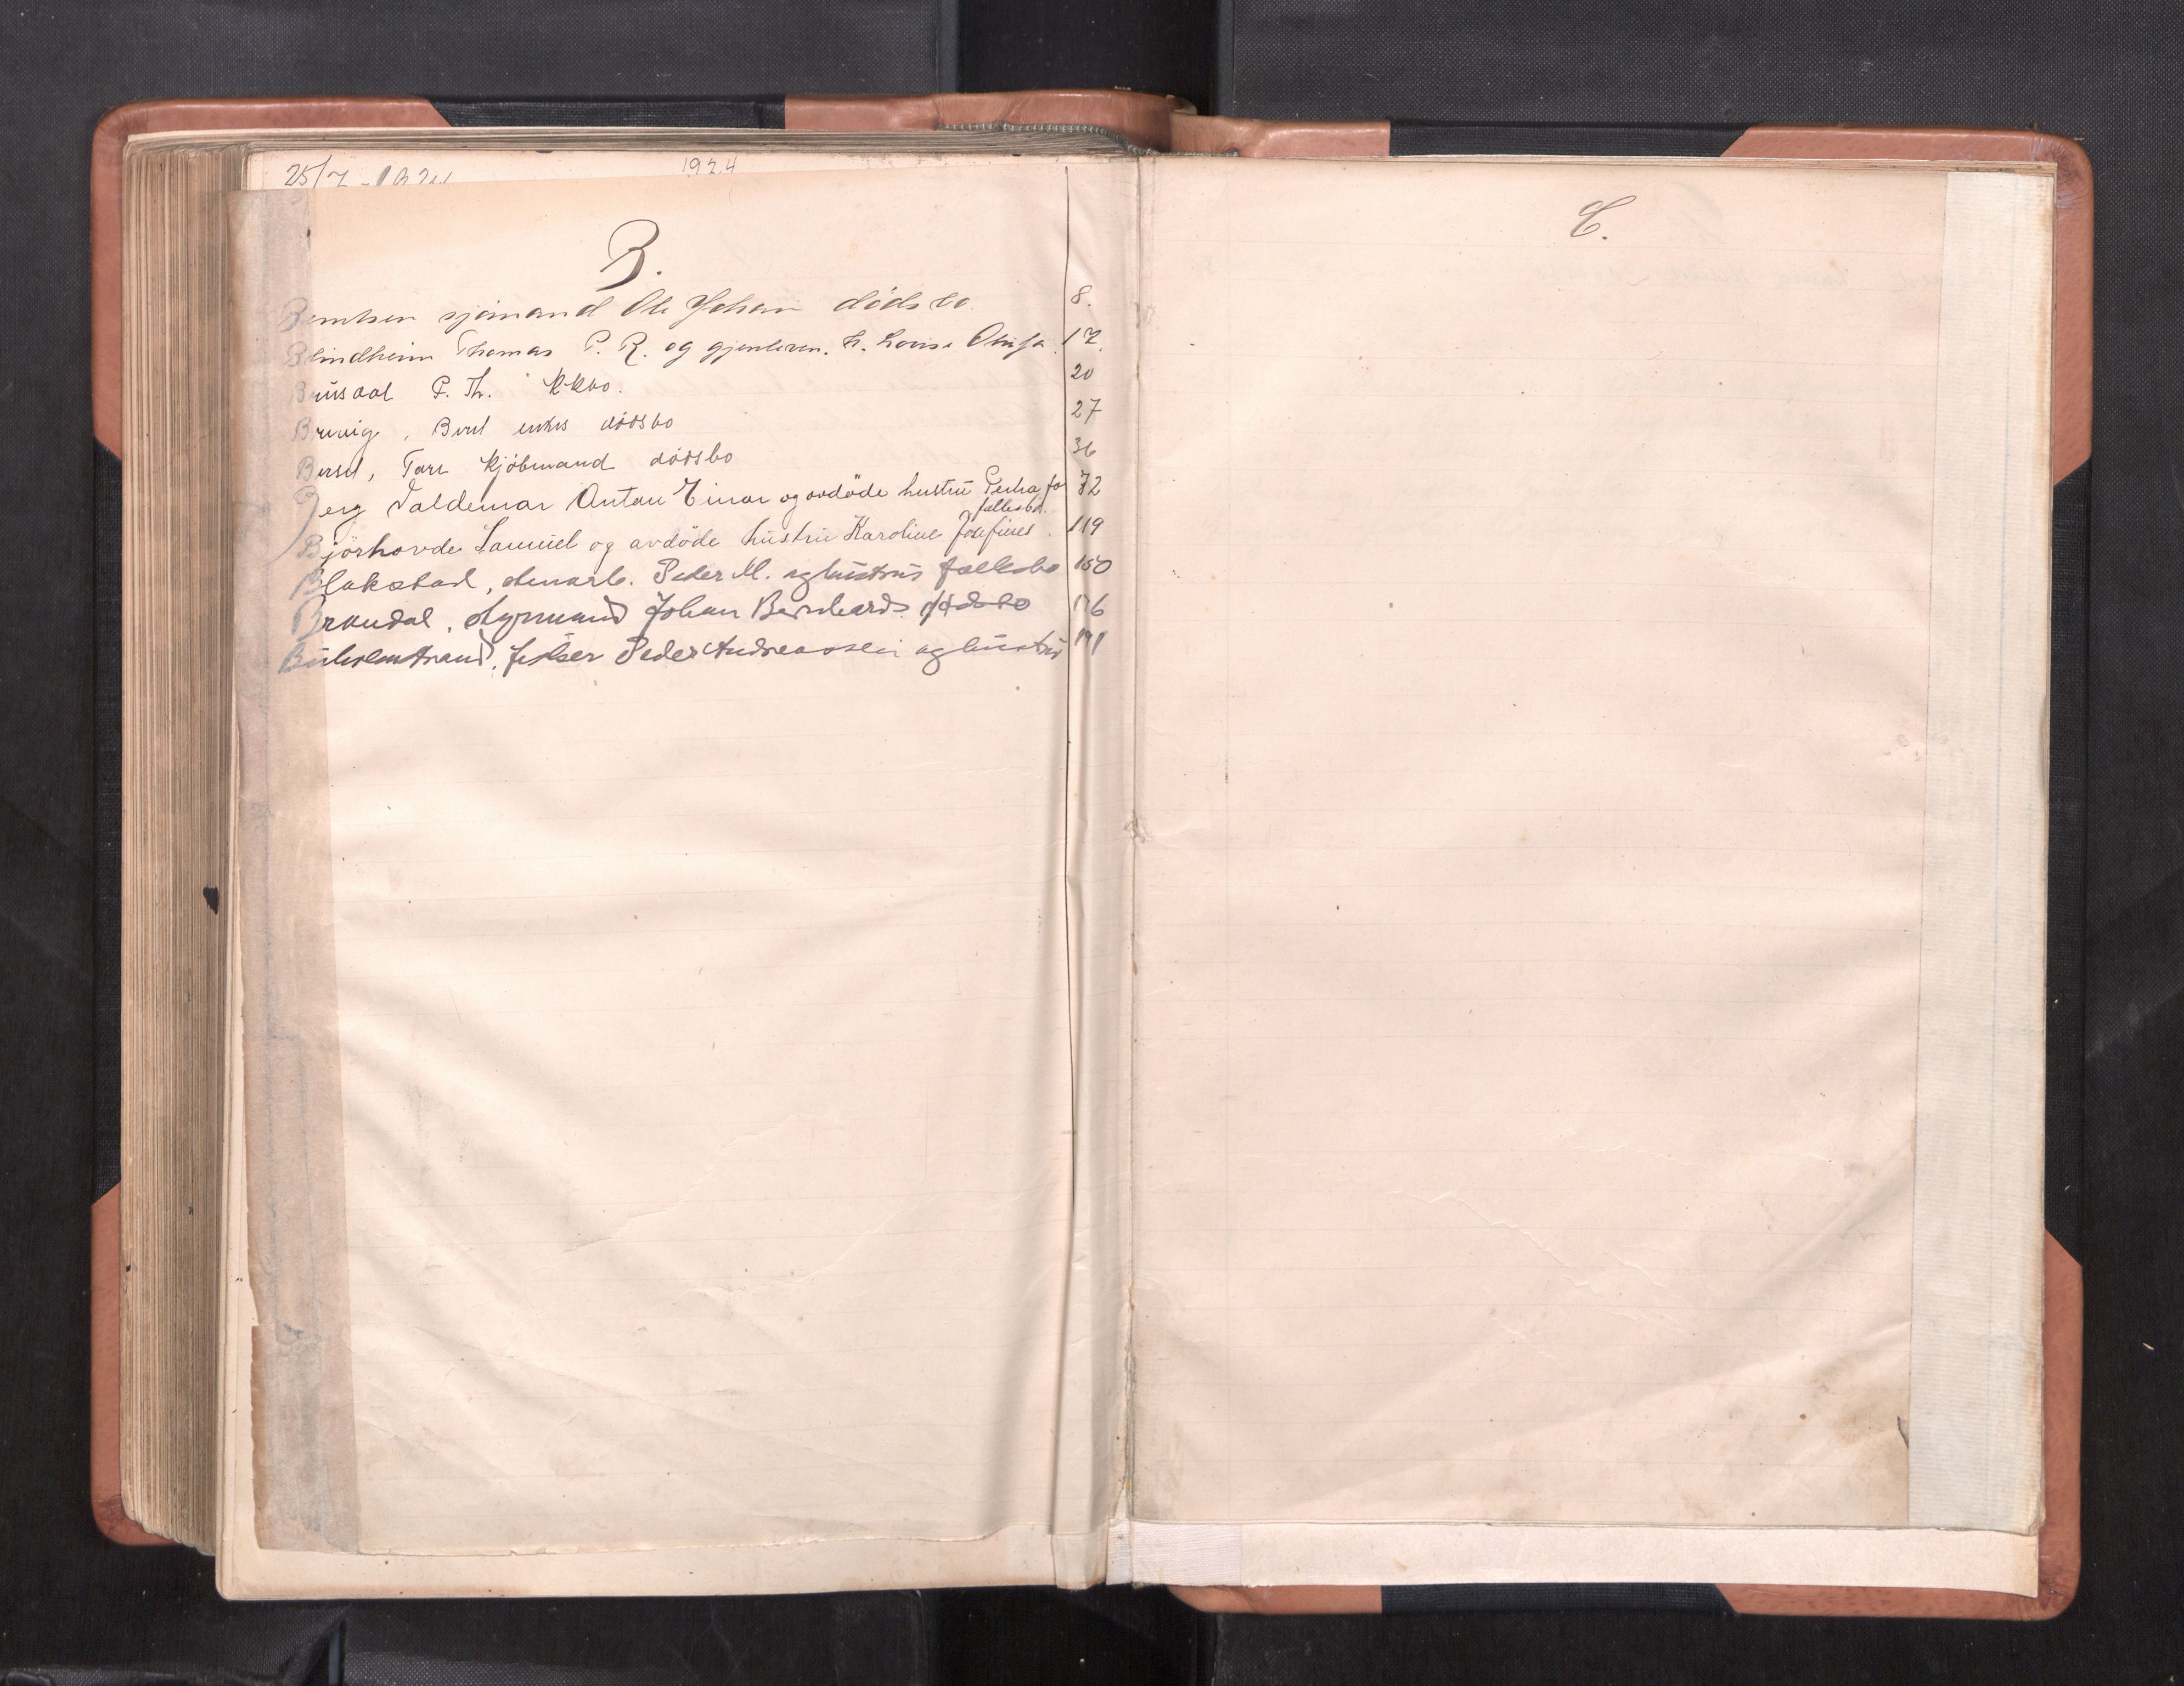 25/7 - 1924 1924
B.
Berntsen sjömand Ole Johan dödsbo. 8.
Blindheim Thomas P. R. og gjenleven. h. Lovise Olufa. 17.
Brusdal P. Th. kkbo. 20
Bruvig, Berit enkes dödsbo 27
Tore kjöbmand dödsbo 36
Berg Valdemar Antau Einar og avdöde hustru Petra 72
fællesbo.
Björhovde Samuel og avdöde hustru Karoline Josefines 119
Blakstad, Peder M. og hustrus fællesbo 150
Brandal, styrmand Johan Bernhards dödsbo 176
Buholmstrand, fisker Peder Andreassen og hustru 191
C.